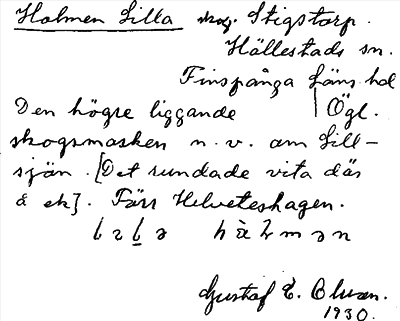 Holmen Lilla skog. Stigstorp.
Hällestads sn.
Finspånga läns hd
Ögl.
Den högre liggande
skogsmarken n. v. om Lill-
sjön. [Det rundade vita där
å ek]. Förr Helveteshagen.
Gustaf E. Olsson.
1930.